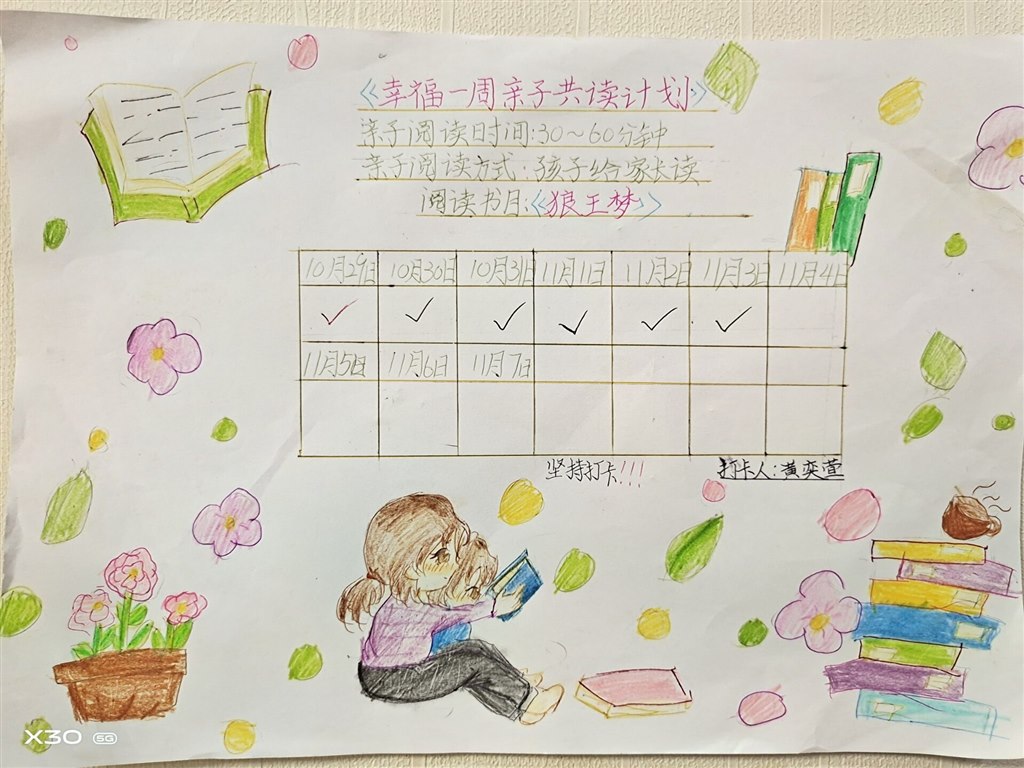 《幸福一周亲子共读计划》
亲子阅读时间:30～60分钟
亲子阅读方式:孩子给家长读
阅读书目:《狼王梦》
10月29日 10月30日 10月31日 11月1日 11月2日 11月3日 11月4日
11月5日 11月6日 11月7日
坚持打卡!!! 打卡人:黄奕萱
X30 5G